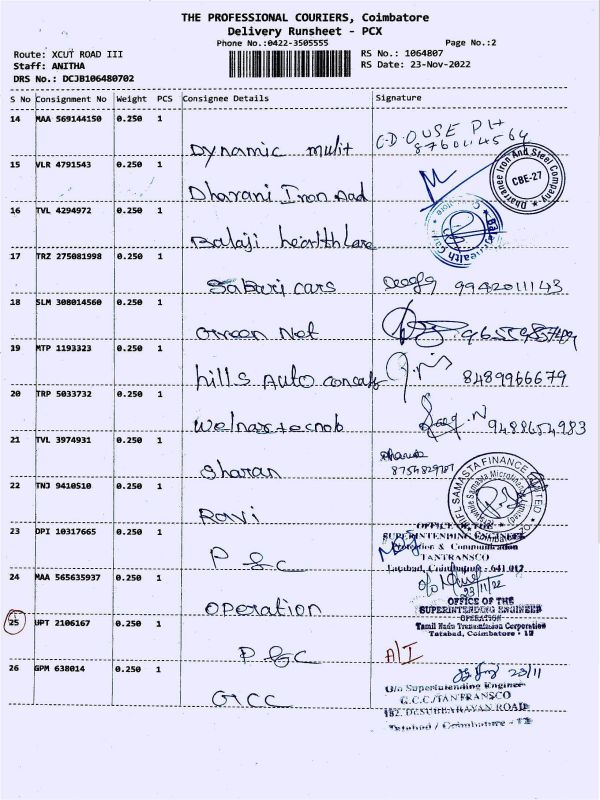 THE PROFESSIONAL COURIERS, Coimbatore
Delivery Runsheet - PCX
Phone No.:0422-3505555
Page No.:2
Route: XCUT ROAD III
RS No.: 1064807
Staff: ANITHA
RS Date: 23-Nov-2022
DRS No.: DCJB106480702
S No Consignment No Weight PCS Consignee Details Signature
14 MAA 569144150 0.250 1
Dynamic mulit
15 VLR 4791543 0.250 1
Dharani Iron And
Dharranee Iron And Steel Company
CBE-27
16 TVL 4294972 0.250 1
Balaji healthcare
17 TRZ 275081998 0.250 1
Saburi cars 9942011143
18 SLM 308014560 0.250 1
Green Net
19 MTP 1193323 0.250 1
hills Auto 8489966679
20 TRP 5033732 0.250 1
9488654983
21 TVL 3974931 0.250 1
Sharan
22 TNJ 9410510 0.250 1
Ravi
IIFL SAMASTA FINANCE LIMITED
23 DPI 10317665 0.250 1
P & C
OFFICE OF THE
SUPERINTENDING ENGINEER
Protection & Communication
TANTRANSCO
Tatabad, Coimbatore - 641 012
24 MAA 565635937 0.250 1
Operation
23/11/22
OFFICE OF THE
SUPERINTENDING ENGINEER
OPERATION
Tamil Nadu Transmission Corporation
Tatabad, Coimbatore - 12
25 UPT 2106167 0.250 1
P & C A/I
26 GPM 638014 0.250 1
GCC
23/11
O/o Superintending Engineer
G.C.C/TANTRANSCO
Tatabad / Coimbatore - 12